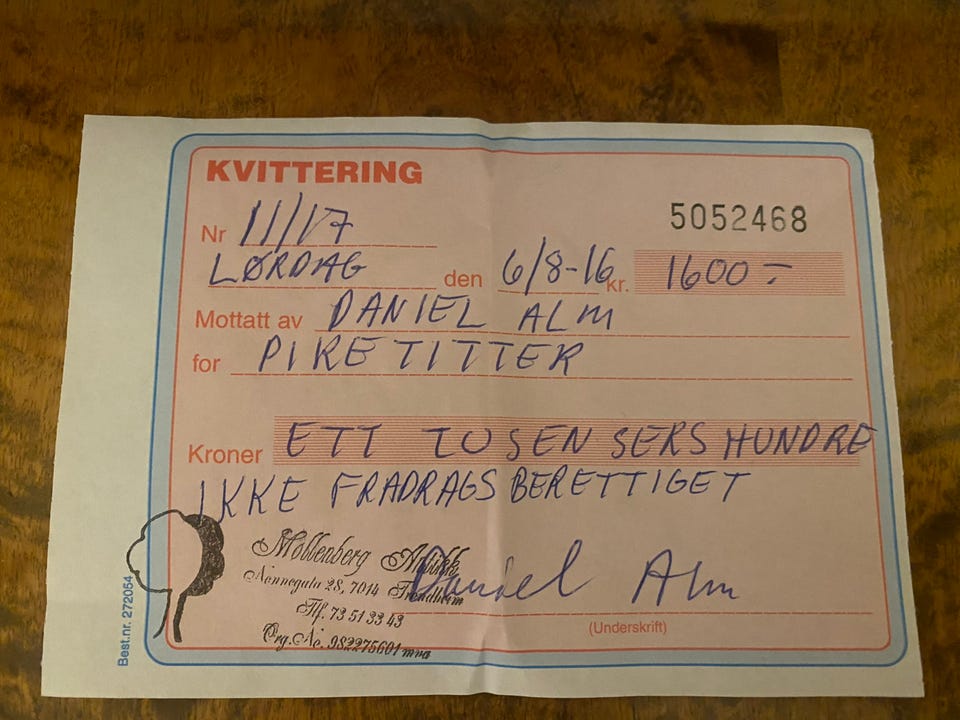 KVITTERING
5052468
Nr 11/17
LØRDAG den 6/8-16 kr. 1600:-
Mottatt av DANIEL ALM
for PIRETITTER
Kroner ETT TUSEN SERS HUNDRE
IKKE FRADRAGSBERETTIGET
Møllenberg Antikk
Nonnegata 28, 7014 Trondheim
Tlf. 73 51 33 43
Org. No. 982275601 mva
Daniel Alm
(Underskrift)
Best.nr. 272054